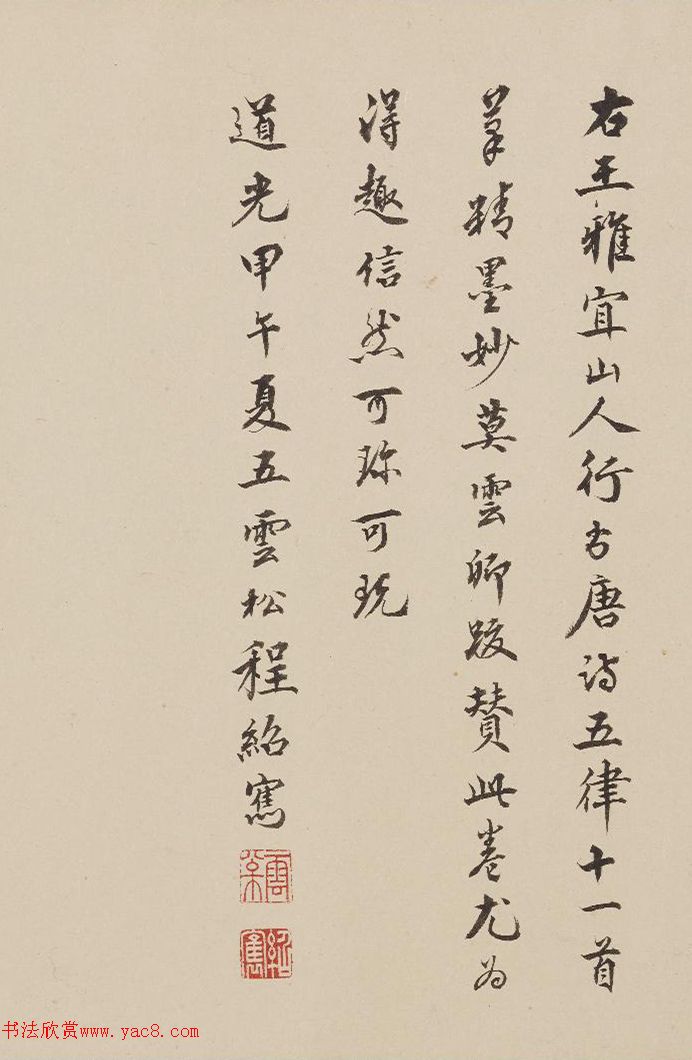 右王雅宜山人行書唐詩五律十一首
筆精墨妙莫雲卿跋贊此卷尤為
得趣信然可珍可玩
道光甲午夏五雲松程紹寯
书法欣赏www.yac8.com